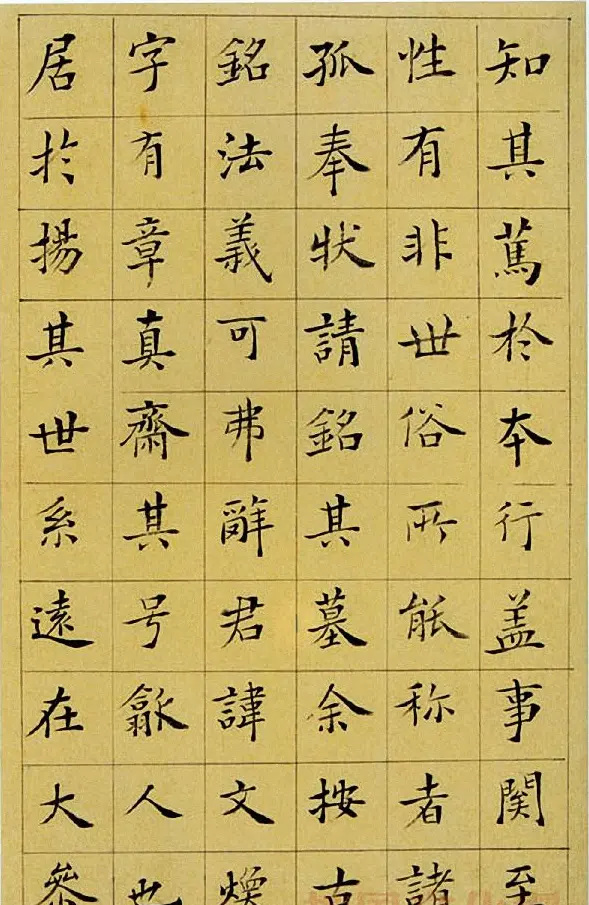 知其篤於本行盖事関至
性有非世俗所能称者諸
孤奉状請銘其墓余按古
銘法義可弗辭君諱文煥
字有章真齋其号歙人也
居於揚其世系遠在大參